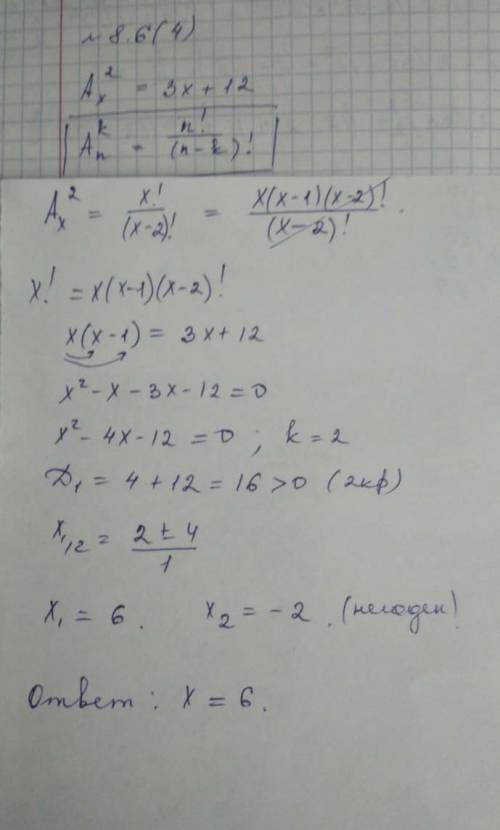 ~ 8.6(4)
A_x^2 = 3x + 12
A_n^k = n! / (n-k)!
A_x^2 = x! / (x-2)! = x(x-1)(x-2)! / (x-2)! .
x! = x(x-1)(x-2)!
x(x-1) = 3x + 12
x² - x - 3x - 12 = 0
x² - 4x - 12 = 0 ; k = 2
D₁ = 4 + 12 = 16 > 0 (2кф)
x₁,₂ = (2 ± 4) / 1
x₁ = 6 . x₂ = -2 . (не годен)
Ответ : x = 6 .